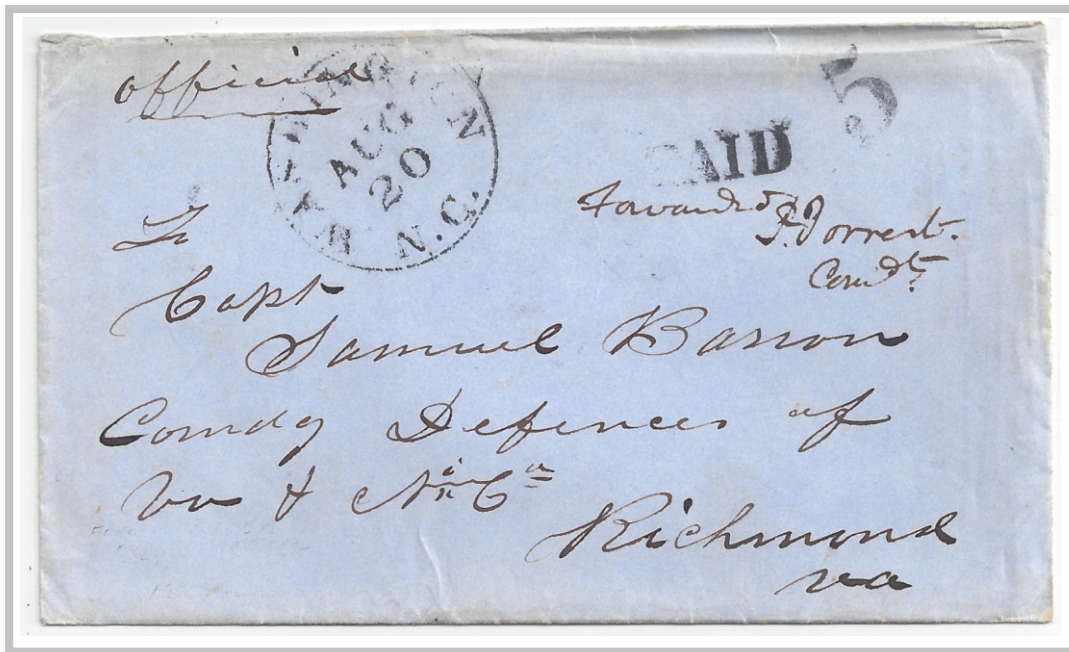 official
WILMINGTON N.C.
AUG
20
PAID 5
Forwarded
F. Forrest.
Comdt.
To
Capt
Samuel Barron
Comdg Defences of
Va & No Ca
Richmond
va